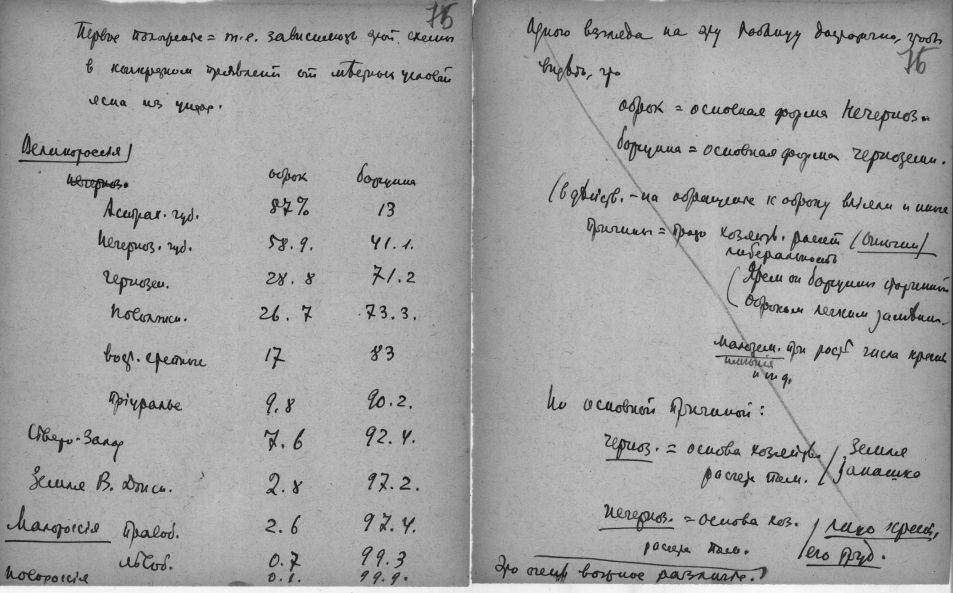 75
Первое положение = т.е. зависимость этой схемы
в конкретном проявлении от местных условий
ясна из цифр.
Великороссия
нечерноз.
оброк барщина
Астрах. губ. 87% 13
Нечерноз. губ. 58.9. 41.1.
Чернозем. 28.8 71.2
Поволжск. 26.7 73.3.
17 83
Приуралье 9.8 90.2.
Северо-Запад 7.6 92.4.
Земля В. Донск. 2.8 97.2.
Малороссія Правоб. 2.6 97.4.
Лѣвоб. 0.7 99.3
Новороссія 0.1. 99.9.
76
Одного взгляда на эту таблицу достаточно, чтобы
видѣть, что
оброк = основная форма Нечерноз.
барщина = основная форма чернозем.
(в дѣйств. - на обращение к оброку влияли и иные
Причины = Прато хозяйств. расчет
либеральность
оброком легким заменил.
малозем. при рост числа крест.
имѣнія
и т. д.
Но основной Причиной:
Черноз. = основа хозяйств. Земля
расчета пом. запашка
Нечерноз. = основа хоз. лицо крест,
расчета пом. его труд.
Это очень важное различіе.